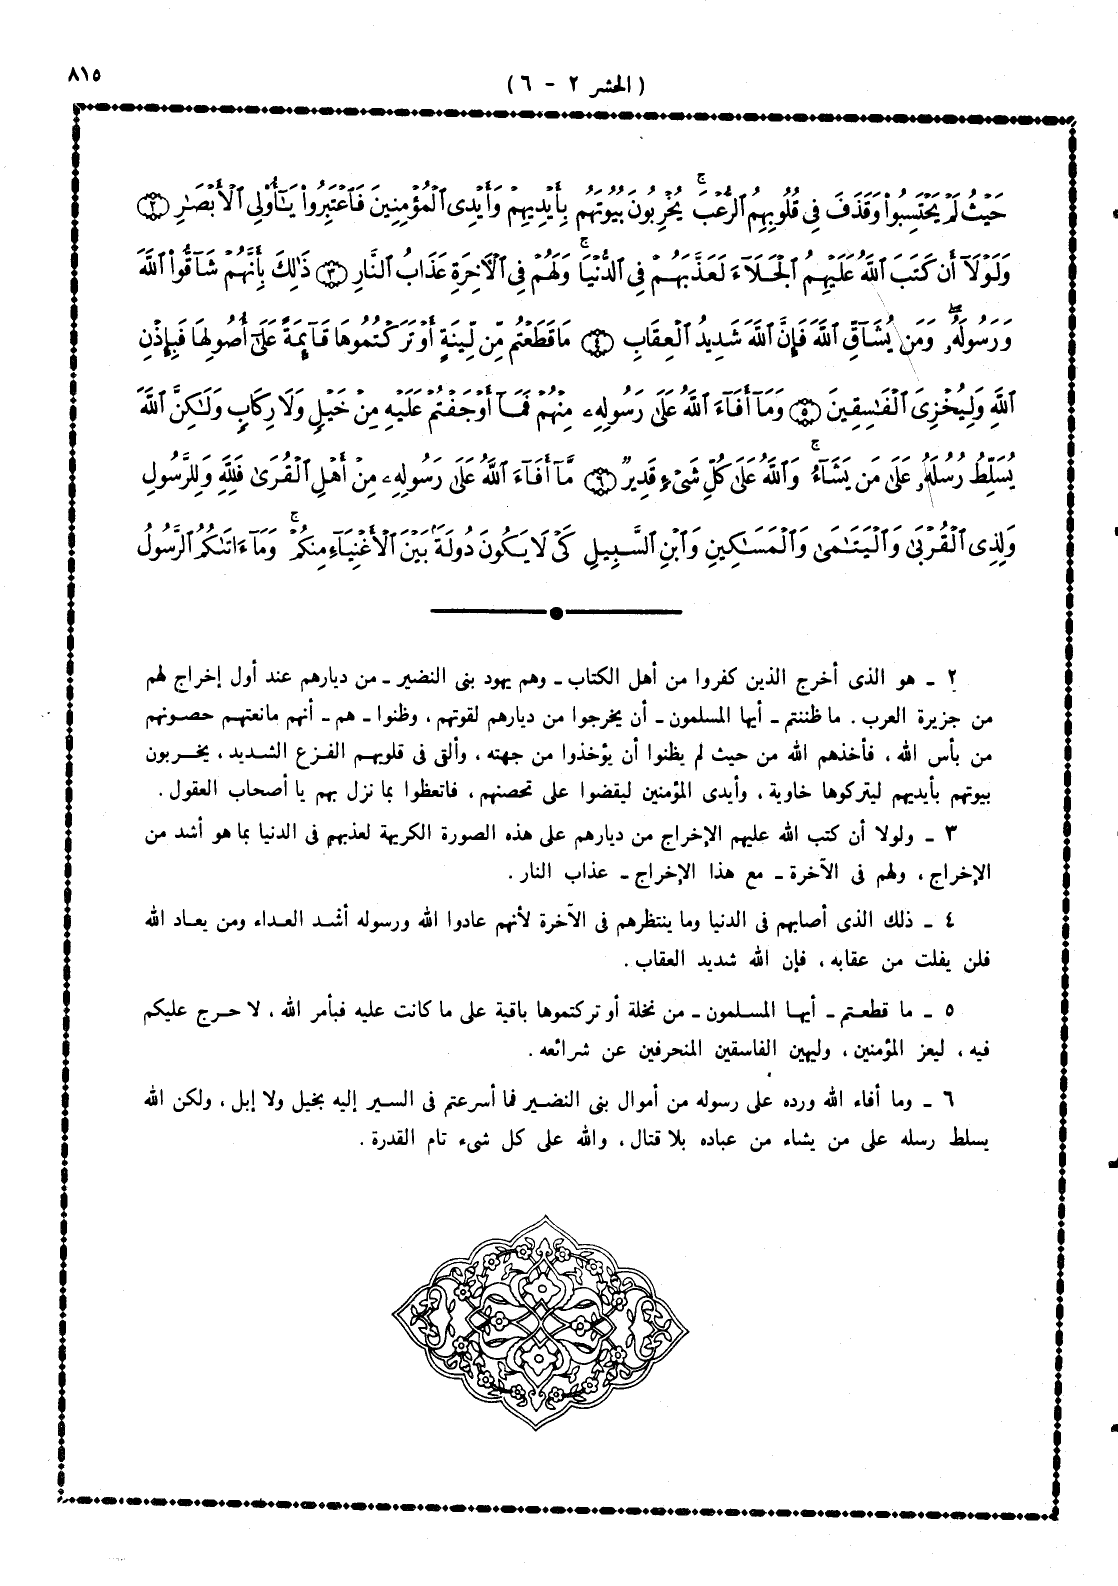 ٨١٥
( الحشر ٢ - ٦ )
حَيْثُ لَمْ يَحْتَسِبُوا۟ وَقَذَفَ فِى قُلُوبِهِمُ ٱلرُّعْبَ ۚ يُخْرِبُونَ بُيُوتَهُم بِأَيْدِيهِمْ وَأَيْدِى ٱلْمُؤْمِنِينَ فَٱعْتَبِرُوا۟ يَـٰٓأُو۟لِى ٱلْأَبْصَـٰرِ ﴿٢﴾
وَلَوْلَآ أَن كَتَبَ ٱللَّهُ عَلَيْهِمُ ٱلْجَلَآءَ لَعَذَّبَهُمْ فِى ٱلدُّنْيَا ۖ وَلَهُمْ فِى ٱلْـَٔاخِرَةِ عَذَابُ ٱلنَّارِ ﴿٣﴾ ذَٰلِكَ بِأَنَّهُمْ شَآقُّوا۟ ٱللَّهَ
وَرَسُولَهُۥ ۖ وَمَن يُشَآقِّ ٱللَّهَ فَإِنَّ ٱللَّهَ شَدِيدُ ٱلْعِقَابِ ﴿٤﴾ مَا قَطَعْتُم مِّن لِّينَةٍ أَوْ تَرَكْتُمُوهَا قَآئِمَةً عَلَىٰٓ أُصُولِهَا فَبِإِذْنِ
ٱللَّهِ وَلِيُخْزِىَ ٱلْفَـٰسِقِينَ ﴿٥﴾ وَمَآ أَفَآءَ ٱللَّهُ عَلَىٰ رَسُولِهِۦ مِنْهُمْ فَمَآ أَوْجَفْتُمْ عَلَيْهِ مِنْ خَيْلٍ وَلَا رِكَابٍ وَلَـٰكِنَّ ٱللَّهَ
يُسَلِّطُ رُسُلَهُۥ عَلَىٰ مَن يَشَآءُ ۚ وَٱللَّهُ عَلَىٰ كُلِّ شَىْءٍ قَدِيرٌ ﴿٦﴾ مَّآ أَفَآءَ ٱللَّهُ عَلَىٰ رَسُولِهِۦ مِنْ أَهْلِ ٱلْقُرَىٰ فَلِلَّهِ وَلِلرَّسُولِ
وَلِذِى ٱلْقُرْبَىٰ وَٱلْيَتَـٰمَىٰ وَٱلْمَسَـٰكِينِ وَٱبْنِ ٱلسَّبِيلِ كَىْ لَا يَكُونَ دُولَةًۢ بَيْنَ ٱلْأَغْنِيَآءِ مِنكُمْ ۚ وَمَآ ءَاتَىٰكُمُ ٱلرَّسُولُ
٢ ـ هو الذى أخرج الذين كفروا من أهل الكتاب ـ وهم يهود بنى النضير ـ من ديارهم عند أول إخراج لهم
من جزيرة العرب . ما ظننتم ـ أيها المسلمون ـ أن يخرجوا من ديارهم لقوتهم ، وظنوا ـ هم ـ أنهم مانعتهم حصونهم
من بأس الله ، فأخذهم الله من حيث لم يظنوا أن يؤخذوا من جهته ، وألقى فى قلوبهم الفزع الشديد ، يخربون
بيوتهم بأيديهم ليتركوها خاوية ، وأيدى المؤمنين ليقضوا على تحصنهم ، فاتعظوا بما نزل بهم يا أصحاب العقول .
٣ ـ ولولا أن كتب الله عليهم الإخراج من ديارهم على هذه الصورة الكريهة لعذبهم فى الدنيا بما هو أشد من
الإخراج ، ولهم فى الآخرة ـ مع هذا الإخراج ـ عذاب النار .
٤ ـ ذلك الذى أصابهم فى الدنيا وما ينتظرهم فى الآخرة لأنهم عادوا الله ورسوله أشد العداء ومن يعاد الله
فلن يفلت من عقابه ، فإن الله شديد العقاب .
٥ ـ ما قطعتم ـ أيها المسلمون ـ من نخلة أو تركتموها باقية على ما كانت عليه فبأمر الله ، لا حرج عليكم
فيه ، ليعز المؤمنين ، وليهين الفاسقين المنحرفين عن شرائعه .
٦ ـ وما أفاء الله ورده على رسوله من أموال بنى النضير فما أسرعتم فى السير إليه بخيل ولا إبل ، ولكن الله
يسلط رسله على من يشاء من عباده بلا قتال ، والله على كل شىء تام القدرة .